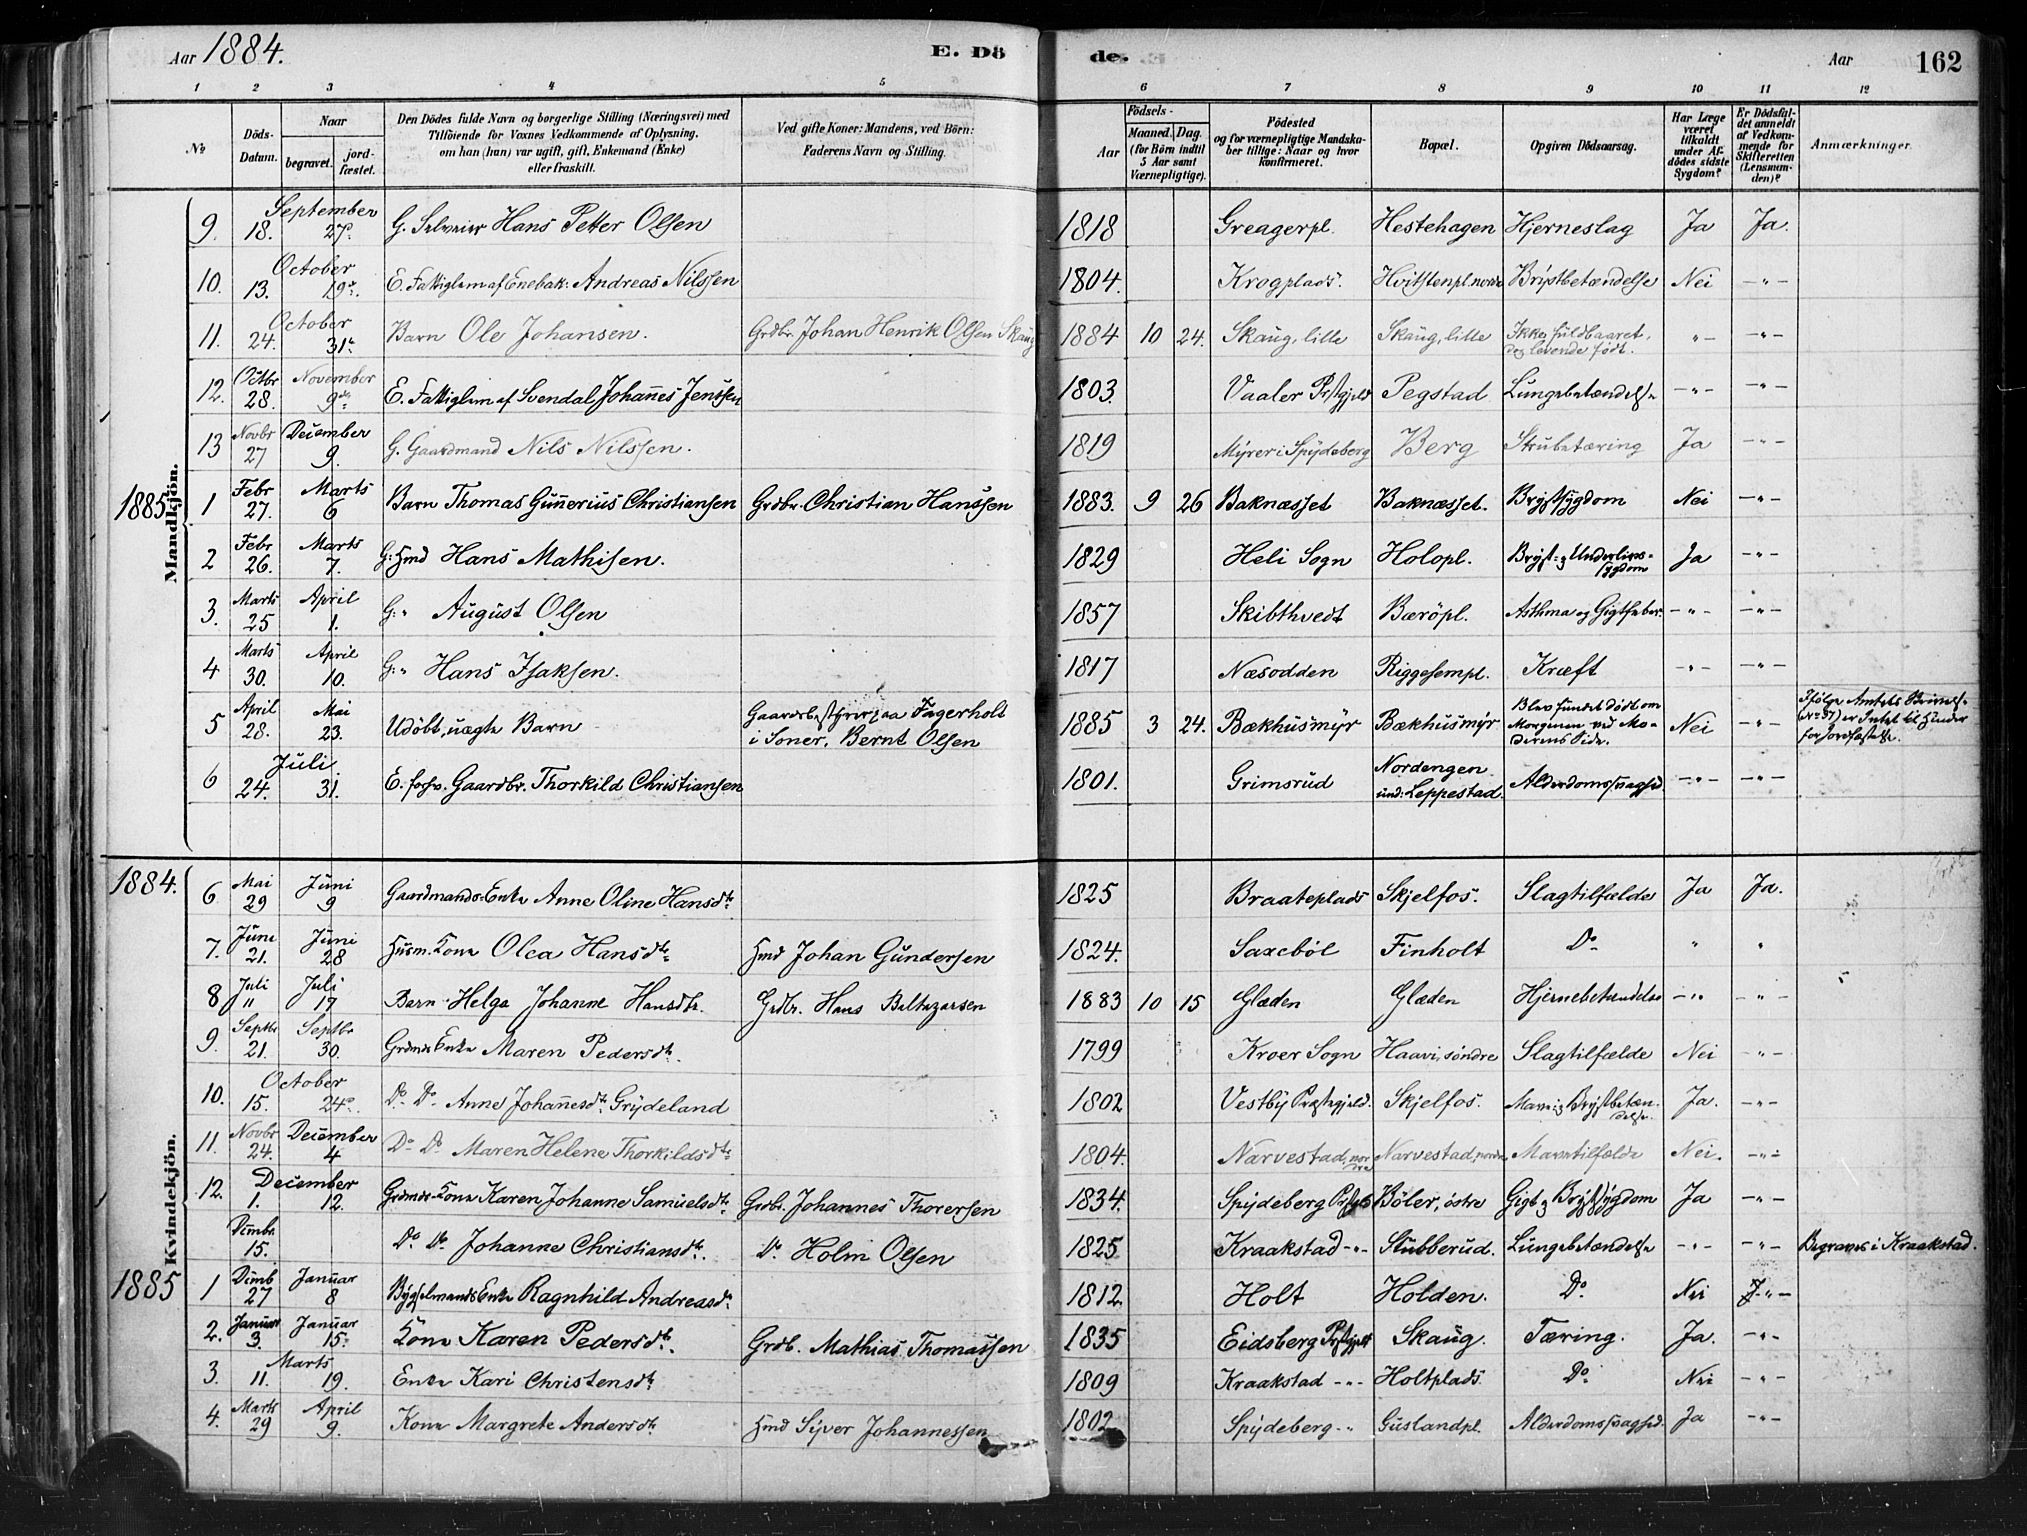 Aar 1884. E. Dö de. Aar 162
1 2 3 4 5 6 7 8 9 10 11 12
№ Döds-Datum. Naar begravet. jord-fæstet. Den Dödes fulde Navn og borgerlige Stilling (Næringsvei) med Tilföiende for Voxnes Vedkommende af Oplysning, om han (hun) var ugift, gift, Enkemand (Enke) eller fraskilt. Ved gifte Koner: Mandens, ved Börn: Faderens Navn og Stilling. Aar Födsels- Maaned. Dag. (for Börn indtil 5 Aar samt Værnepligtige). Födested og for værnepligtige Mandskaber tillige: Naar og hvor konfirmeret. Bopæl. Opgiven Dödsaarsag. Har Læge været tilkaldt under Afdödes sidste Sygdom? Er Dödsfaldet anmeldt af Vedkommende for Skifteretten (Lensmanden)? Anmærkninger.
Mandkjön.
9. September 18. 27. G. Selveier Hans Petter Olsen 1818 Greagerpl. Hestehagen Hjerneslag Ja Ja.
10. October 13. 19de. E. Fattiglem af Enebak: Andreas Nilssen 1804. Krogplads. Hvitstenpl. nordr Brÿstbetændelse Nei -"-
11. October 24. 31te. Barn Ole Johansen. Grdbr. Johan Henrik Olsen Skaug 1884 10 24. Skaug, lille Skaug, lille Ikke fuldbaaret, dog levende født. "- -"-
12. Octbr 28. November 9de. E. Fattiglem af Svendal Johannes Jenssen 1803. Vaaler Prstgjeld Pegstad Lungebetændelse -"- -"-
13 Novbr 27 December 9. G. Gaardmand Nils Nilssen. 1819 Mÿrer i Spÿdeberg Berg Strubetæring Ja -"-
1885.
1 Febr 27. Marts 6 Barn Thomas Gunnerius Christiansen Grdbr. Christian Hanssen 1883. 9 26 Baknæsset Baknæsset. Brÿstsÿgdom Nei -"-
2 Febr 26. Marts 7. G: Hmd Hans Mathisen. 1829 Heli Sogn Holopl. Brÿst- og Underlivs-sygdom Ja -"-
3. Marts 25 April 1. G: " August Olsen 1857 Skibthvedt Bærøpl. Asthma og Gigtfeber. -"- -"-
4 Marts 30. April 10. G: " Hans Isaksen. 1817 Næsodden Riggesempl. Kræft -"- -"-
5 April 28. Mai 23. Udöbt, uægte Barn Gaardsbestyrer paa Fagerholt i Soner, Bernt Olsen 1885 3 24. Bækhusmÿr Bækhusmÿr Blev fundet dödt om Morgenen ved Moderens Side. Nei -"- Ifølge Amtets Brev er Intet til Hinder for Jordfæstelse.
6 Juli 24. 31. E. forhv. Gaardbr. Thorkild Christiansen 1801. Grimsrud Nordengen und: Leppestad. Alderdomssvaghed. -"- -"-
Kvindekjön.
1884.
6 Mai 29 Juni 9 Gaardmands Enke Anne Oline Hansdtr 1825 Braateplads Skjelfos. Slagtilfælde Ja Ja.
7. Juni 21. Juni 28 Husm. Kone Olea Hansdtr Hmd Johan Gundersen 1824. Saxebøl Finholt Do " "
8 Juli " Juli 17 Barn Helga Johanne Hansdtr. Grdbr. Hans Baltazarsen 1883 10 15 Glæden Glæden Hjernebetændelse -"- -"-
9. Septbr 21. Septbr 30. Grdmds Enke Maren Pedersdtr. 1799 Kroer Sogn Haavi, søndre Slagtilfælde Nei -"-
10. October 15. 24de. Do. Do. Anne Johannesdtr. Grÿdeland 1802 Vestbÿ Præstegjeld. Skjelfos. Mave- og Brÿstbetændelse. Ja. -"-
11. Novbr 24. December 4 Do Do Maren Helene Thorkildsdtr 1804. Narvestad, nordre Narvestad, nordre Mavetilfælde Nei. -"-
12. December 1. 12. Grdmds-Kone Karen Johanne Samuelsdtr. Grdbr. Johannes Thorersen 1834. Spÿdeberg Bøler, østre Gigt og Brÿstsÿgdom Ja -"-
Dcmbr. 15. Do. Do. Johanne Christiansdtr. Do. Holm Olsen 1825. Kraakstad -"- Stubberud. Lungebetændelse -"- -"- Begraves i Kraakstad.
1885
1 Dcmb 27 Januar 8 Bÿgselmands Enke Ragnhild Andreasdtr 1812 Holt Holden. Do. Nei J. "-
2. Januar 3. Januar 15. Kone Karen Pedersdtr. Grdb. Mathias Thomassen 1835 Eidsberg Prstgjeld Skaug. Tæring. Ja. -"-
3. Marts 11. 19. Enke Kari Christensdtr. 1809 Kraakstad -"- Holtplads. Do. Nei -"-
4. Marts 29 April 9. Kone Margrete Andersdtr. Hmd Siver Johannessen 1802 Spÿdeberg -"- Guslandpl. Alderdomssvaghed. Ja -"-